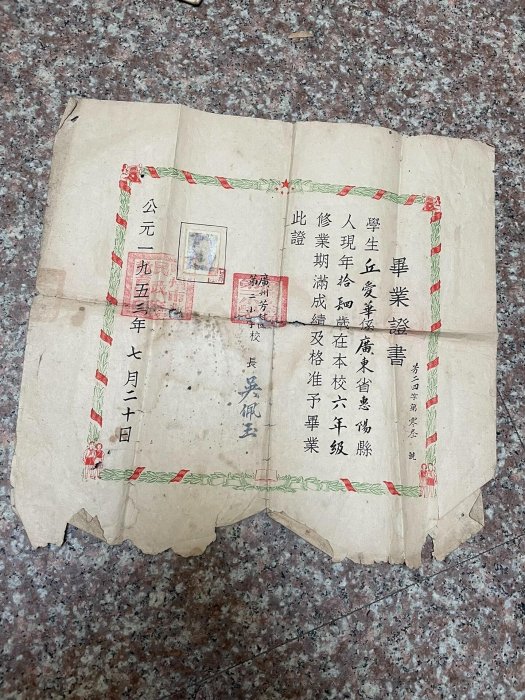 畢業證書
芳二四字第零叁號
學生丘愛華係廣東省惠陽縣
人現年拾四歲在本校六年級
修業期滿成績及格准予畢業
此證
廣州芳村區
第二小學校
長吳佩玉
公元一九五三年七月二十日